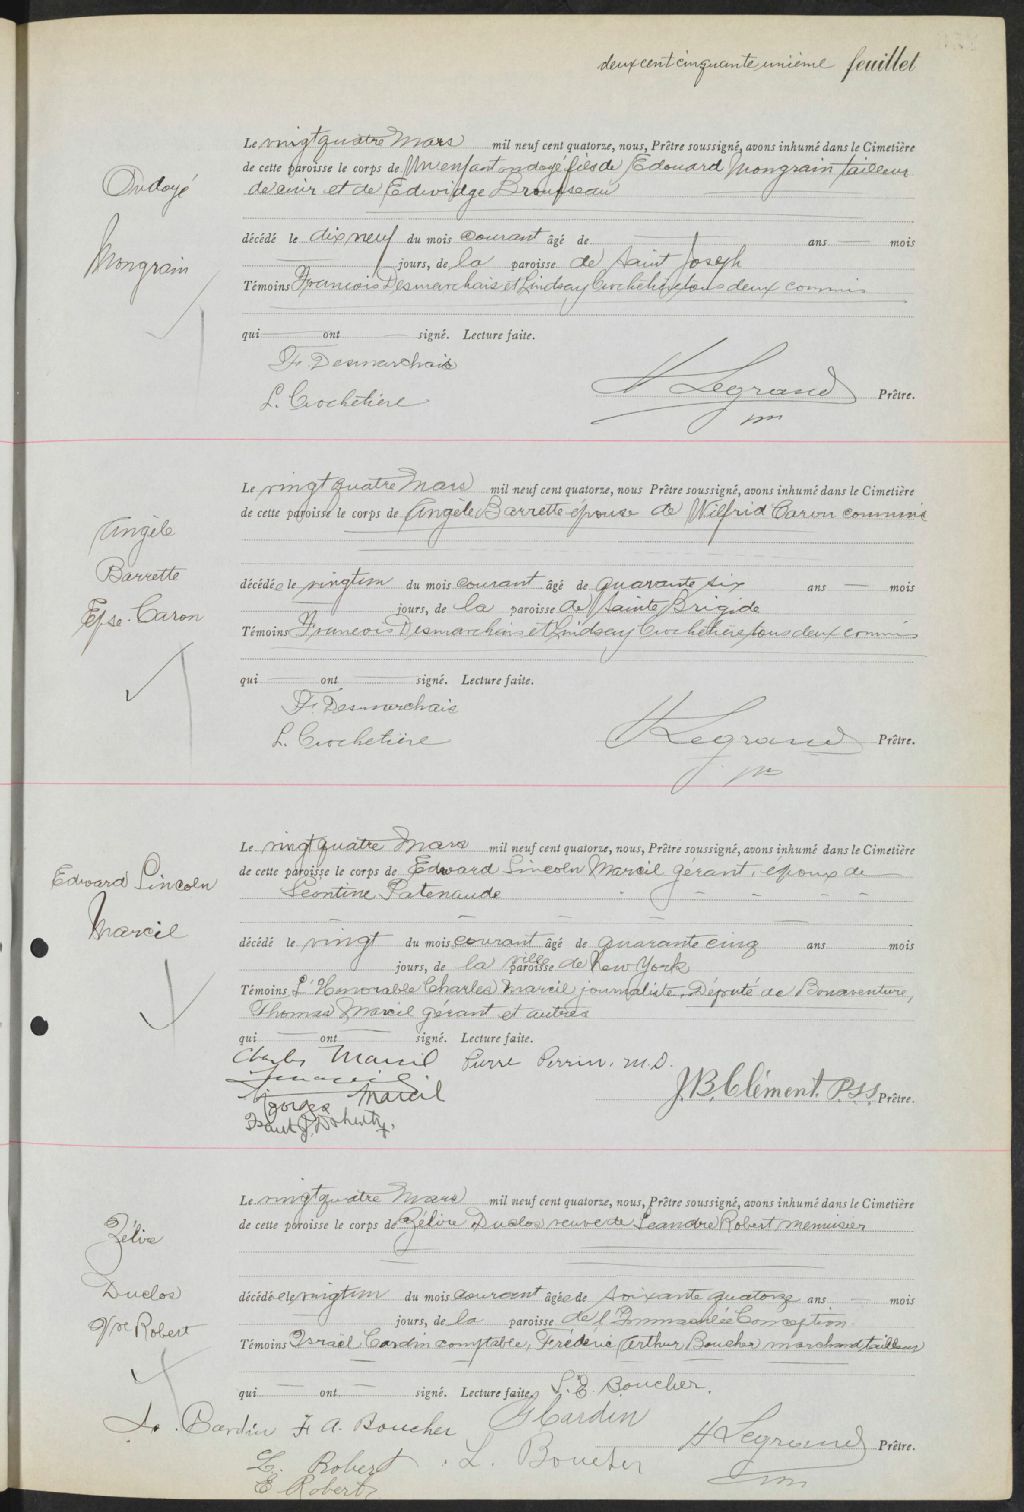 deux cent cinquante unième feuillet
Ondoyé
Mongrain
Le vingt quatre Mars mil neuf cent quatorze, nous, Prêtre soussigné, avons inhumé dans le Cimetière
de cette paroisse le corps de Un enfant ondoyé fils de Edouard Mongrain tailleur
de cuir et de Edwidge Brousseau
décédé le dix neuf du mois courant âgé de ans mois
jours, de la paroisse de Saint Joseph
Témoins Francois Desmarchais et Lindsay Crochetière tous deux commis
qui ont signé. Lecture faite.
F. Desmarchais
L. Crochetière
H Legrand Prêtre.
Angèle
Barrette
Epse. Caron
Le vingt quatre Mars mil neuf cent quatorze, nous Prêtre soussigné, avons inhumé dans le Cimetière
de cette paroisse le corps de Angèle Barrette épouse de Wilfrid Caron commis
décédée le vingt un du mois courant âgé de quarante six ans mois
jours, de la paroisse de Sainte Brigide
Témoins Francois Desmarchais et Lindsay Crochetière tous deux commis
qui ont signé. Lecture faite.
F. Desmarchais
L. Crochetière
H Legrand Prêtre.
Edward Lincoln
Marcil
Le vingt quatre Mars mil neuf cent quatorze, nous, Prêtre soussigné, avons inhumé dans le Cimetière
de cette paroisse le corps de Edward Lincoln Marcil gérant, époux de
Léontine Patenaude
décédé le vingt du mois courant âgé de quarante cinq ans mois
jours, de la ville paroisse de New York
Témoins L'Honorable Charles Marcil journaliste, Député de Bonaventure,
Thomas Marcil gérant et autres
qui ont signé. Lecture faite.
Charles Marcil Pierre Perrin. M.D.
Georges Marcil
J.B. Clément. P.S.S. Prêtre.
Frank J. Doherty.
Zélire
Duclos
Vve Robert
Le vingt quatre Mars mil neuf cent quatorze, nous, Prêtre soussigné, avons inhumé dans le Cimetière
de cette paroisse le corps de Zélire Duclos veuve de Léandre Robert menuisier
décédée le vingt un du mois courant âgée de soixante quatorze ans mois
jours, de la paroisse de l'Immaculée Conception.
Témoins Israël Cardin comptable, Fréderic Arthur Boucher marchand tailleur
qui ont signé. Lecture faite. S. E. Boucher.
Is. Cardin F. A. Boucher G Cardin
H Legrand Prêtre.
L. Robert L. Boucher
E Robert